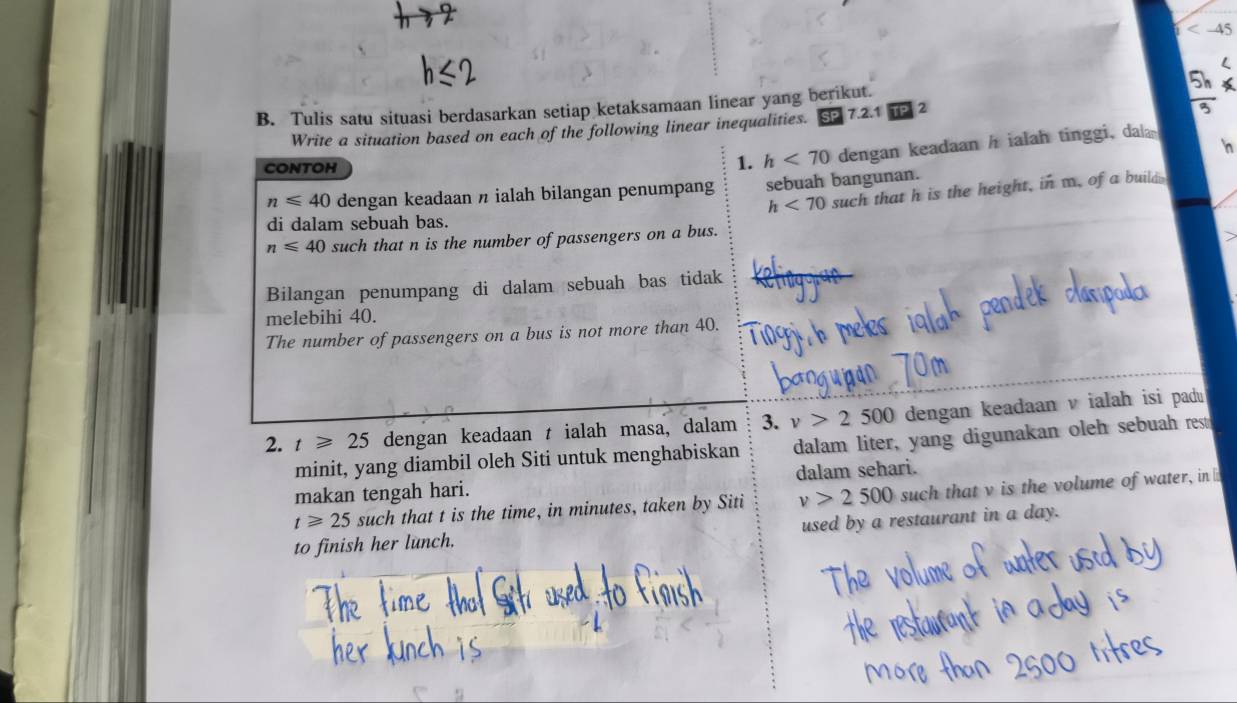 h ≥ 2
h ≤ 2
< -45
5h
3
h
B. Tulis satu situasi berdasarkan setiap ketaksamaan linear yang berikut.
Write a situation based on each of the following linear inequalities. SP 7.2.1 TP 2
CONTOH
n ⩽ 40 dengan keadaan n ialah bilangan penumpang
di dalam sebuah bas.
n ⩽ 40 such that n is the number of passengers on a bus.
Bilangan penumpang di dalam sebuah bas tidak
melebihi 40.
The number of passengers on a bus is not more than 40.
1. h < 70 dengan keadaan h ialah tinggi, dala
sebuah bangunan.
h < 70 such that h is the height, in m, of a buildi
Tinggi, h meter ialah pendek daripada
bangunan 70m
2. t ⩾ 25 dengan keadaan t ialah masa, dalam
minit, yang diambil oleh Siti untuk menghabiskan
makan tengah hari.
t ⩾ 25 such that t is the time, in minutes, taken by Siti
to finish her lunch.
The time that Siti used to finish
her lunch is
3. v > 2 500 dengan keadaan v ialah isi padu
dalam liter, yang digunakan oleh sebuah rest
dalam sehari.
v > 2 500 such that v is the volume of water, in li
used by a restaurant in a day.
The volume of water used by
the restaurant in a day is
more than 2500 litres